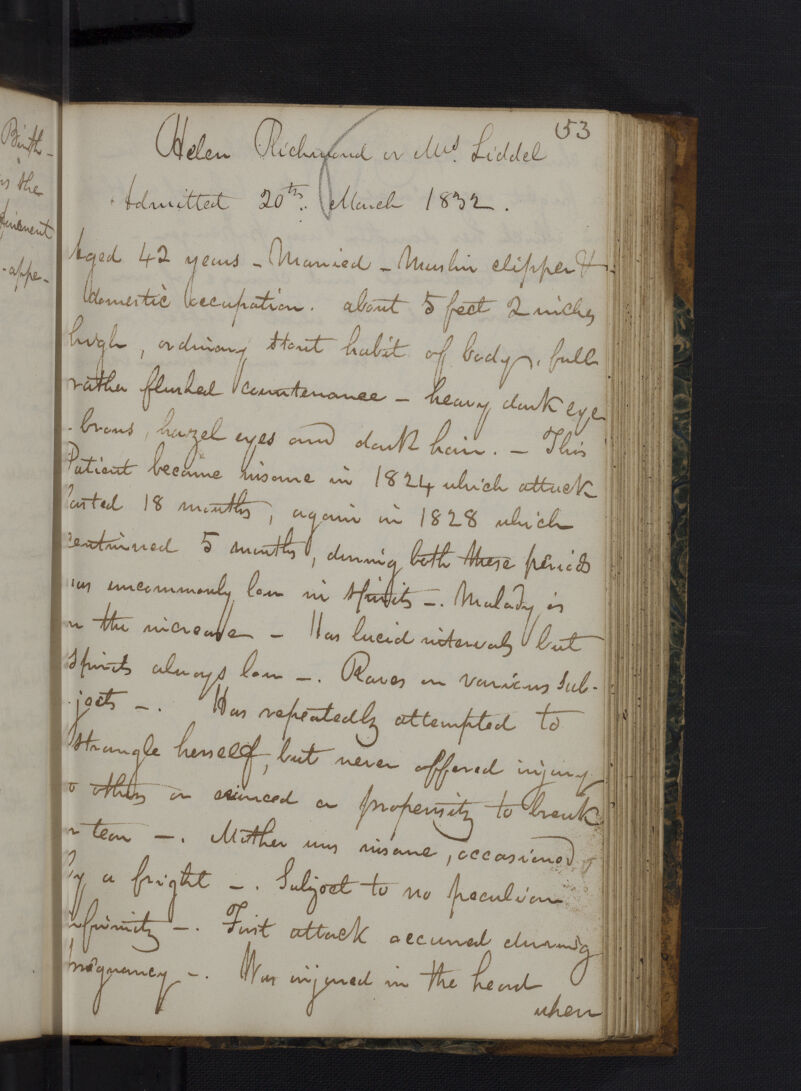 53
Helen Richmond or Mrs. Liddel
Admitted 20th. March 1832.
Aged 42 years - Married - Muslin clipper &
domestic occupation. about 5 feet 2 inches
high, ordinary stout habit of body, full
rather flushed countenance - heavy dark eye
- brows, hazel eyes and dark hair. - This
Patient became insane in 1824 which attack
lasted 18 months, again in 1828 which
continued 5 months, during both these periods
was uncommonly low in spirits -. Malady is
on the increase - Has lucid intervals but
spirits always low -. Raves on various sub-
-jects -. Has repeatedly attempted to
strangle herself, but never offered injury
to others or evinced a propensity to break
or tear -. Mother was insane, occasioned
by a fright -. Subject to no peculiar
infirmity -. First attack occurred during
pregnancy -. Was injured in the head
when
Birth-
the
-appe-